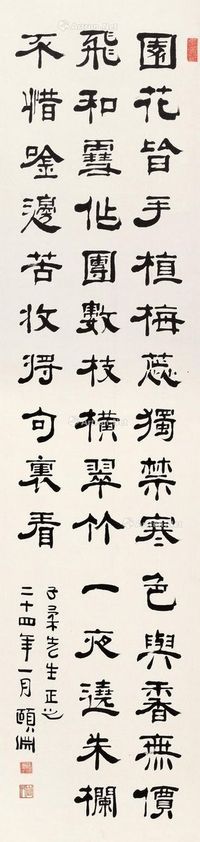 園花皆手植梅蕊獨禁寒色與香無價
飛和雪作團數枝橫翠竹一夜遶朱欄
不惜唫邊苦收將句裏看
子柔先生正之
二十四年一月頤淵